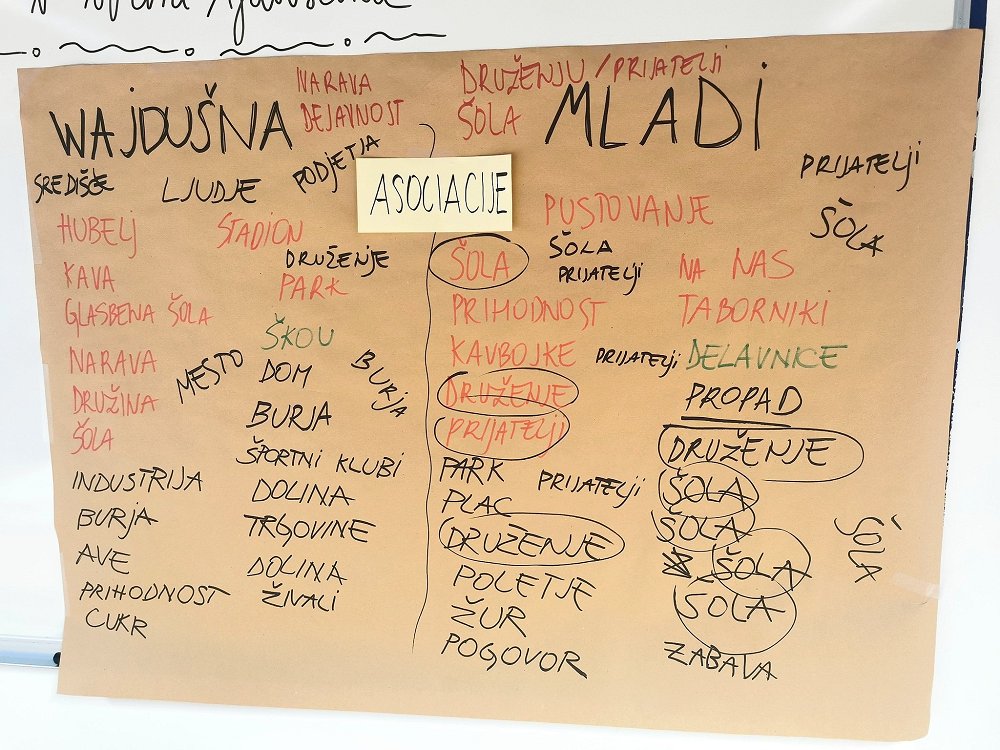 WAJDUŠNA
NARAVA
DEJAVNOST
SREDIŠČE
LJUDJE
PODJETJA
HUBELJ
STADION
KAVA
DRUŽENJE
PARK
GLASBENA ŠOLA
ŠKOU
NARAVA
MESTO
DOM
BURJA
DRUŽINA
BURJA
ŠOLA
ŠPORTNI KLUBI
INDUSTRIJA
DOLINA
BURJA
TRGOVINE
AVE
DOLINA
PRIHODNOST
ŽIVALI
CUKR
ASOCIACIJE
DRUŽENJU / PRIJATELJI
ŠOLA
MLADI
PRIJATELJI
PUSTOVANJE
ŠOLA
ŠOLA
ŠOLA
PRIJATELJI
NA NAS
PRIHODNOST
TABORNIKI
KAVBOJKE
PRIJATELJI
DELAVNICE
DRUŽENJE
PROPAD
PRIJATELJI
DRUŽENJE
PARK
PRIJATELJI
ŠOLA
PLAC
ŠOLA
ŠOLA
DRUŽENJE
ŠOLA
POLETJE
ŠOLA
ŽUR
POGOVOR
ZABAVA